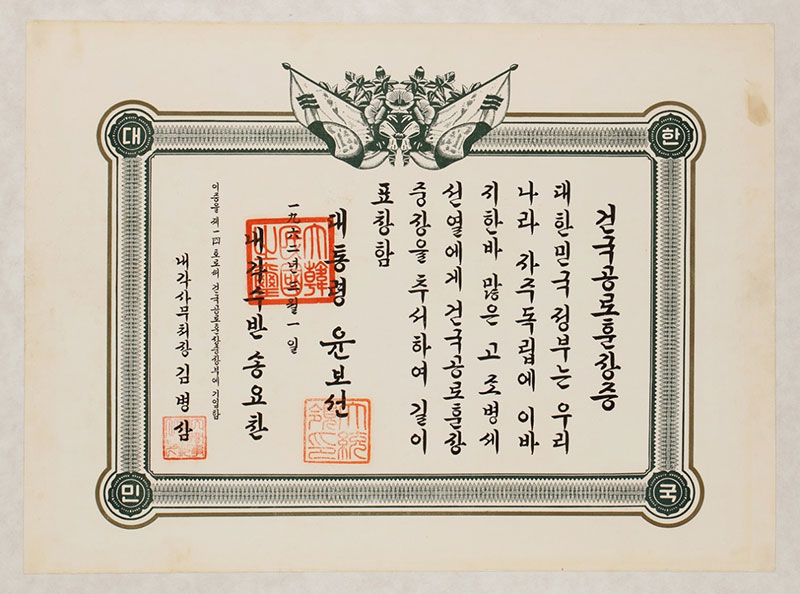 대한민국
건국공로훈장증
대한민국 정부는 우리
나라 자주독립에 이바
지한바 많은 고 조병세
선열에게 건국공로훈장
중장을 추서하여 길이
표창함
대통령 윤보선
一九六二년三월一일
내각수반 송요찬
이증을 제一四호로써 건국공로훈장중장부에 기입함
내각사무처장 김병삼
大韓民國之璽
大統領印